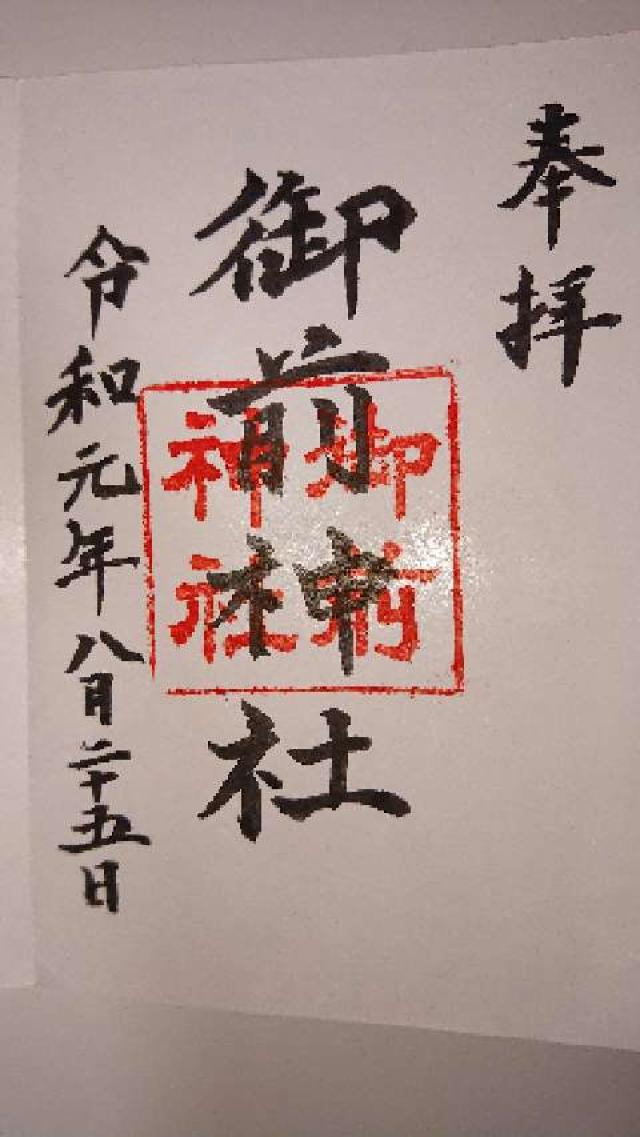 奉拝
御前神社
御前
神社
令和元年八月二十五日